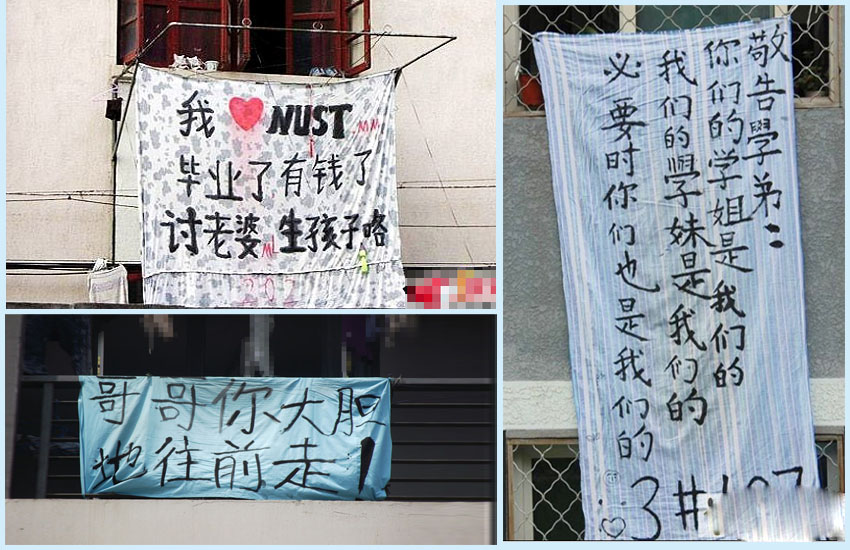 我❤NUST
毕业了有钱了
讨老婆生孩子咯
202
哥哥你大胆
地往前走！
敬告學弟：
你们的学姐是我们的
我们的學妹是我们的
必要时你们也是我们的
3#